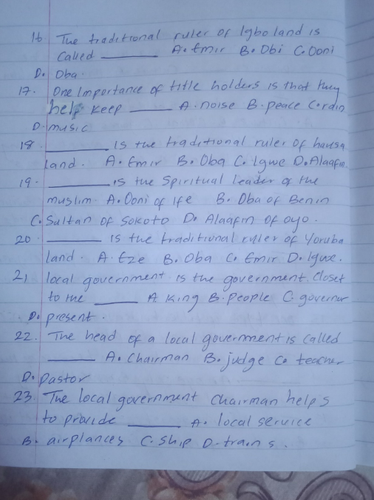 16 The traditional ruler of Igboland is
called ______ A. Emir B. Obi C. Ooni
D. Oba.
17. One importance of title holders is that they
help keep ______ A. noise B. peace C.
D. music
18 ______ is the traditional ruler of hausa
land. A. Emir B. Oba C. Igwe D. Alaafin
19. ______ is the Spiritual leader of the
muslim. A. Ooni of Ife B. Oba of Benin
C. Sultan of Sokoto D. Alaafin of oyo.
20. ______ is the traditional ruler of Yoruba
land. A. Eze B. Oba C. Emir D. Igwe.
21. local government is the government closet
to the ______ A King B. people C. governor
D. present.
22. The head of a local government is called
______ A. Chairman B. judge C. teacher
D. Pastor
23. The local government chairman helps
to provide ______ A. local service
B. airplances C. ship D. trains.